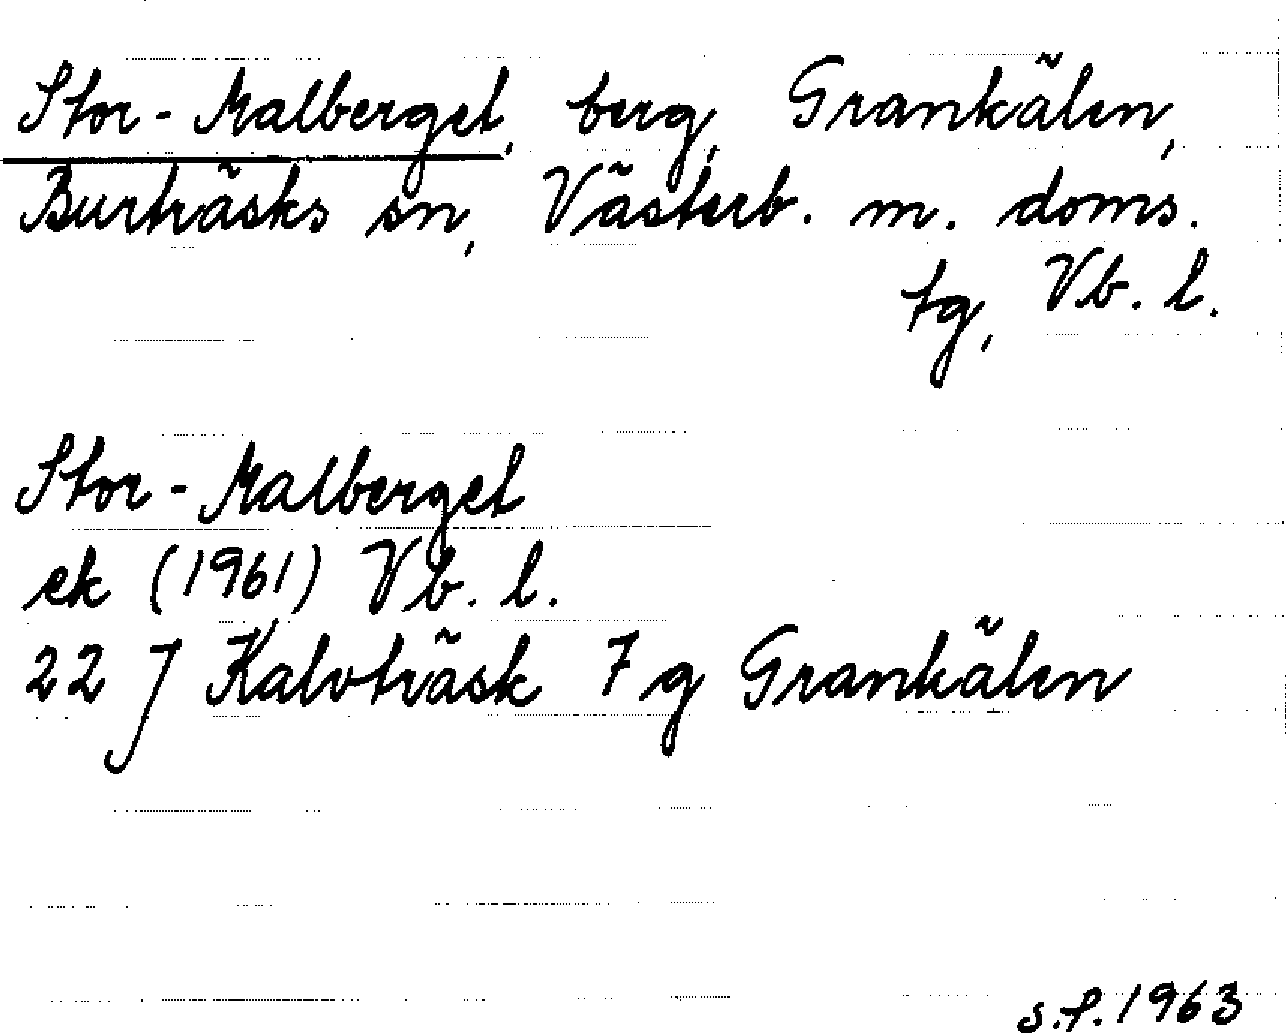 Stor-Malberget, berg, Grankälen,
Burträsks sn, Västerb. m. doms.
tg, Vb. l.
Stor-Malberget
ek (1961) Vb. l.
22 J Kalvträsk 7 g Grankälen
s.f. 1963